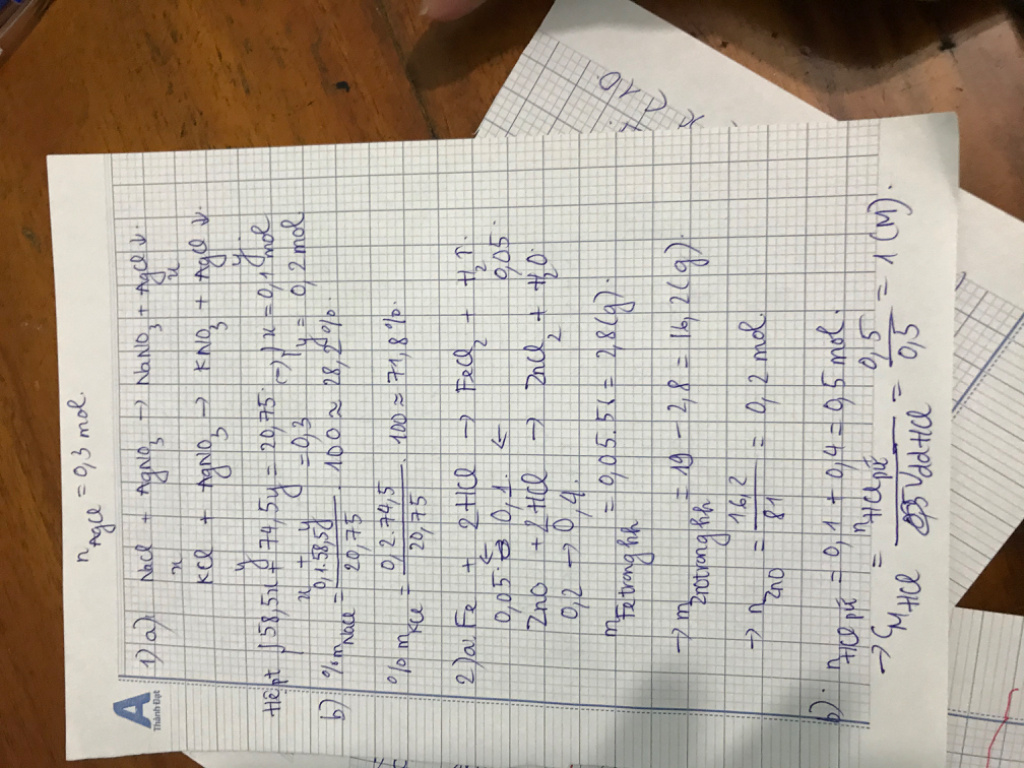 n AgCl = 0,3 mol.
A
Thành Đạt
1) a) NaCl + AgNO3 → NaNO3 + AgCl ↓.
x x
KCl + AgNO3 → KNO3 + AgCl ↓.
y y
Hệ pt { 58,5x + 74,5y = 20,75. (→) { x = 0,1 mol
x + y = 0,3 y = 0,2 mol
b) %mNaCl = 0,1.58,5 / 20,75 . 100 ≈ 28,2%.
% mKCl = 0,2.74,5 / 20,75 . 100 ≈ 71,8%.
2) a) Fe + 2HCl → FeCl2 + H2↑.
0,05 ← 0,1 ← 0,05
ZnO + 2HCl → ZnCl2 + H2O.
0,2 → 0,4
mFe trong hh = 0,05.56 = 2,8(g).
→ mZnO trong hh = 19 - 2,8 = 16,2(g).
→ nZnO = 16,2 / 81 = 0,2 mol.
b). nHCl pứ = 0,1 + 0,4 = 0,5 mol.
→ CM HCl = nHCl pứ / Vdd HCl = 0,5 / 0,5 = 1 (M).